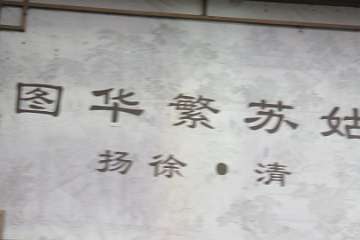 姑苏繁华图
清·徐扬